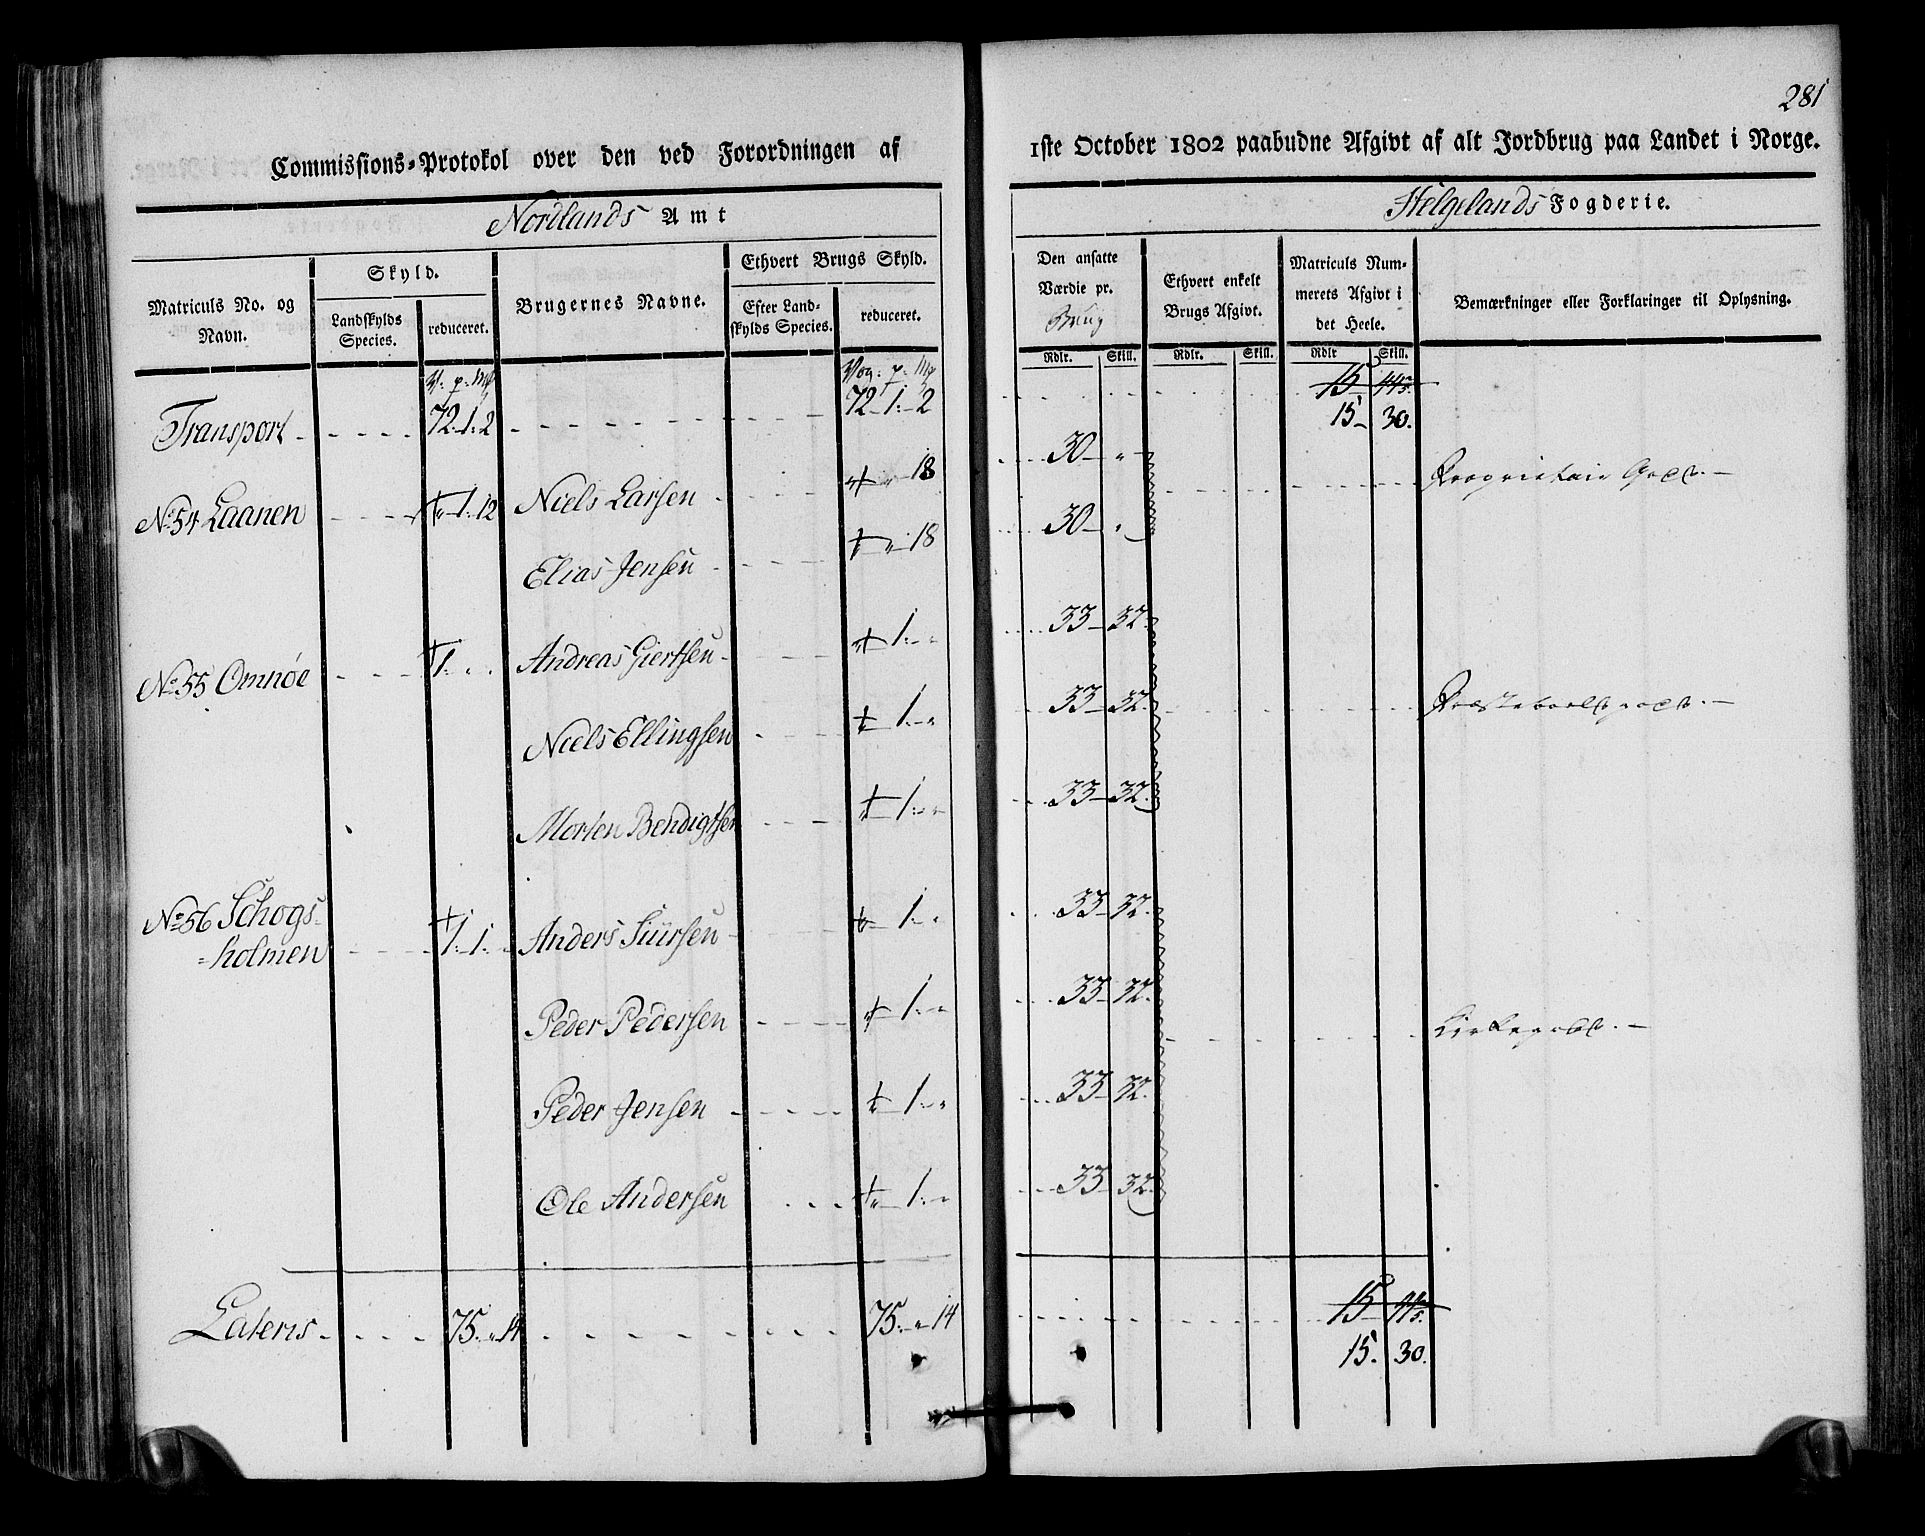 281
Commissions-Protokol over den ved Forordningen af 1ste October 1802 paabudne Afgivt af alt Jordbrug paa Landet i Norge.
Nordlands Amt
Helgelands Fogderie.
Matriculs No. og Navn.
Skyld.
Landskylds Species.
reduceret.
Brugernes Navne.
Ethvert Brugs Skyld.
Efter Landskylds Species.
reduceret.
Den ansatte Værdie pr. Brug
Ethvert enkelt Brugs Afgivt.
Matriculs Nummerets Afgivt i det Heele.
Bemærkninger eller Forklaringer til Oplysning.
Rdlr. Skill. Rdlr. Skill. Rdlr Skill.
V: p: Mk
Vog: p: Mk
Transport 72. 1. 2 72 1. 2 15 30.
No 54 Laanen 1. 12 Niels Larsen 18 30 Proprietair Gods.
Elias Jensen 18 30
No 55 Omnøe 1. Andreas Giertsen 1. 33 32.
Niels Ellingsen 1. 33 32. Præstebolsgods.
Morten Bendigtsen 1. 33 32.
No 56 Schogs=
=holmen 1. 1. Anders Siursen 1. 33 32.
Peder Pedersen 1. 33 32. Kirkegods.
Peder Jensen 1. 33 32.
Ole Andersen 1. 33 32.
Lateris 75. 14 75. 14 15. 30.